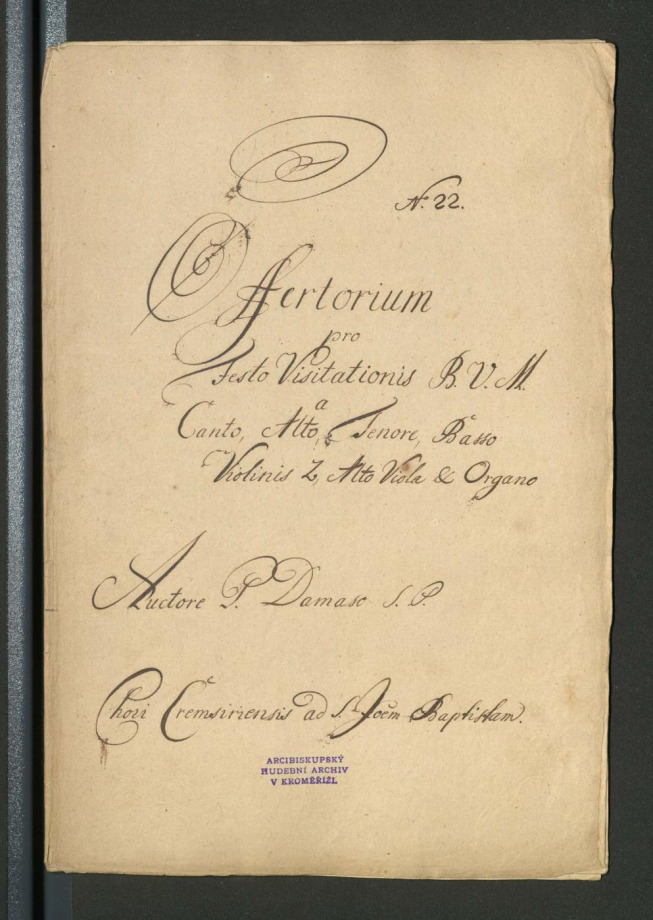 N: 22.
Offertorium
pro
Festo Visitationis B. V. M.
a
Canto, Alto, Tenore, Basso
Violinis 2, Alto Viola & Organo
Auctore P. Damaso S. P.
Chori Cremsiriensis ad S. Joêm Baptistam.
ARCIBISKUPSKÝ
HUDEBNÍ ARCHIV
V KROMĚŘÍŽI.